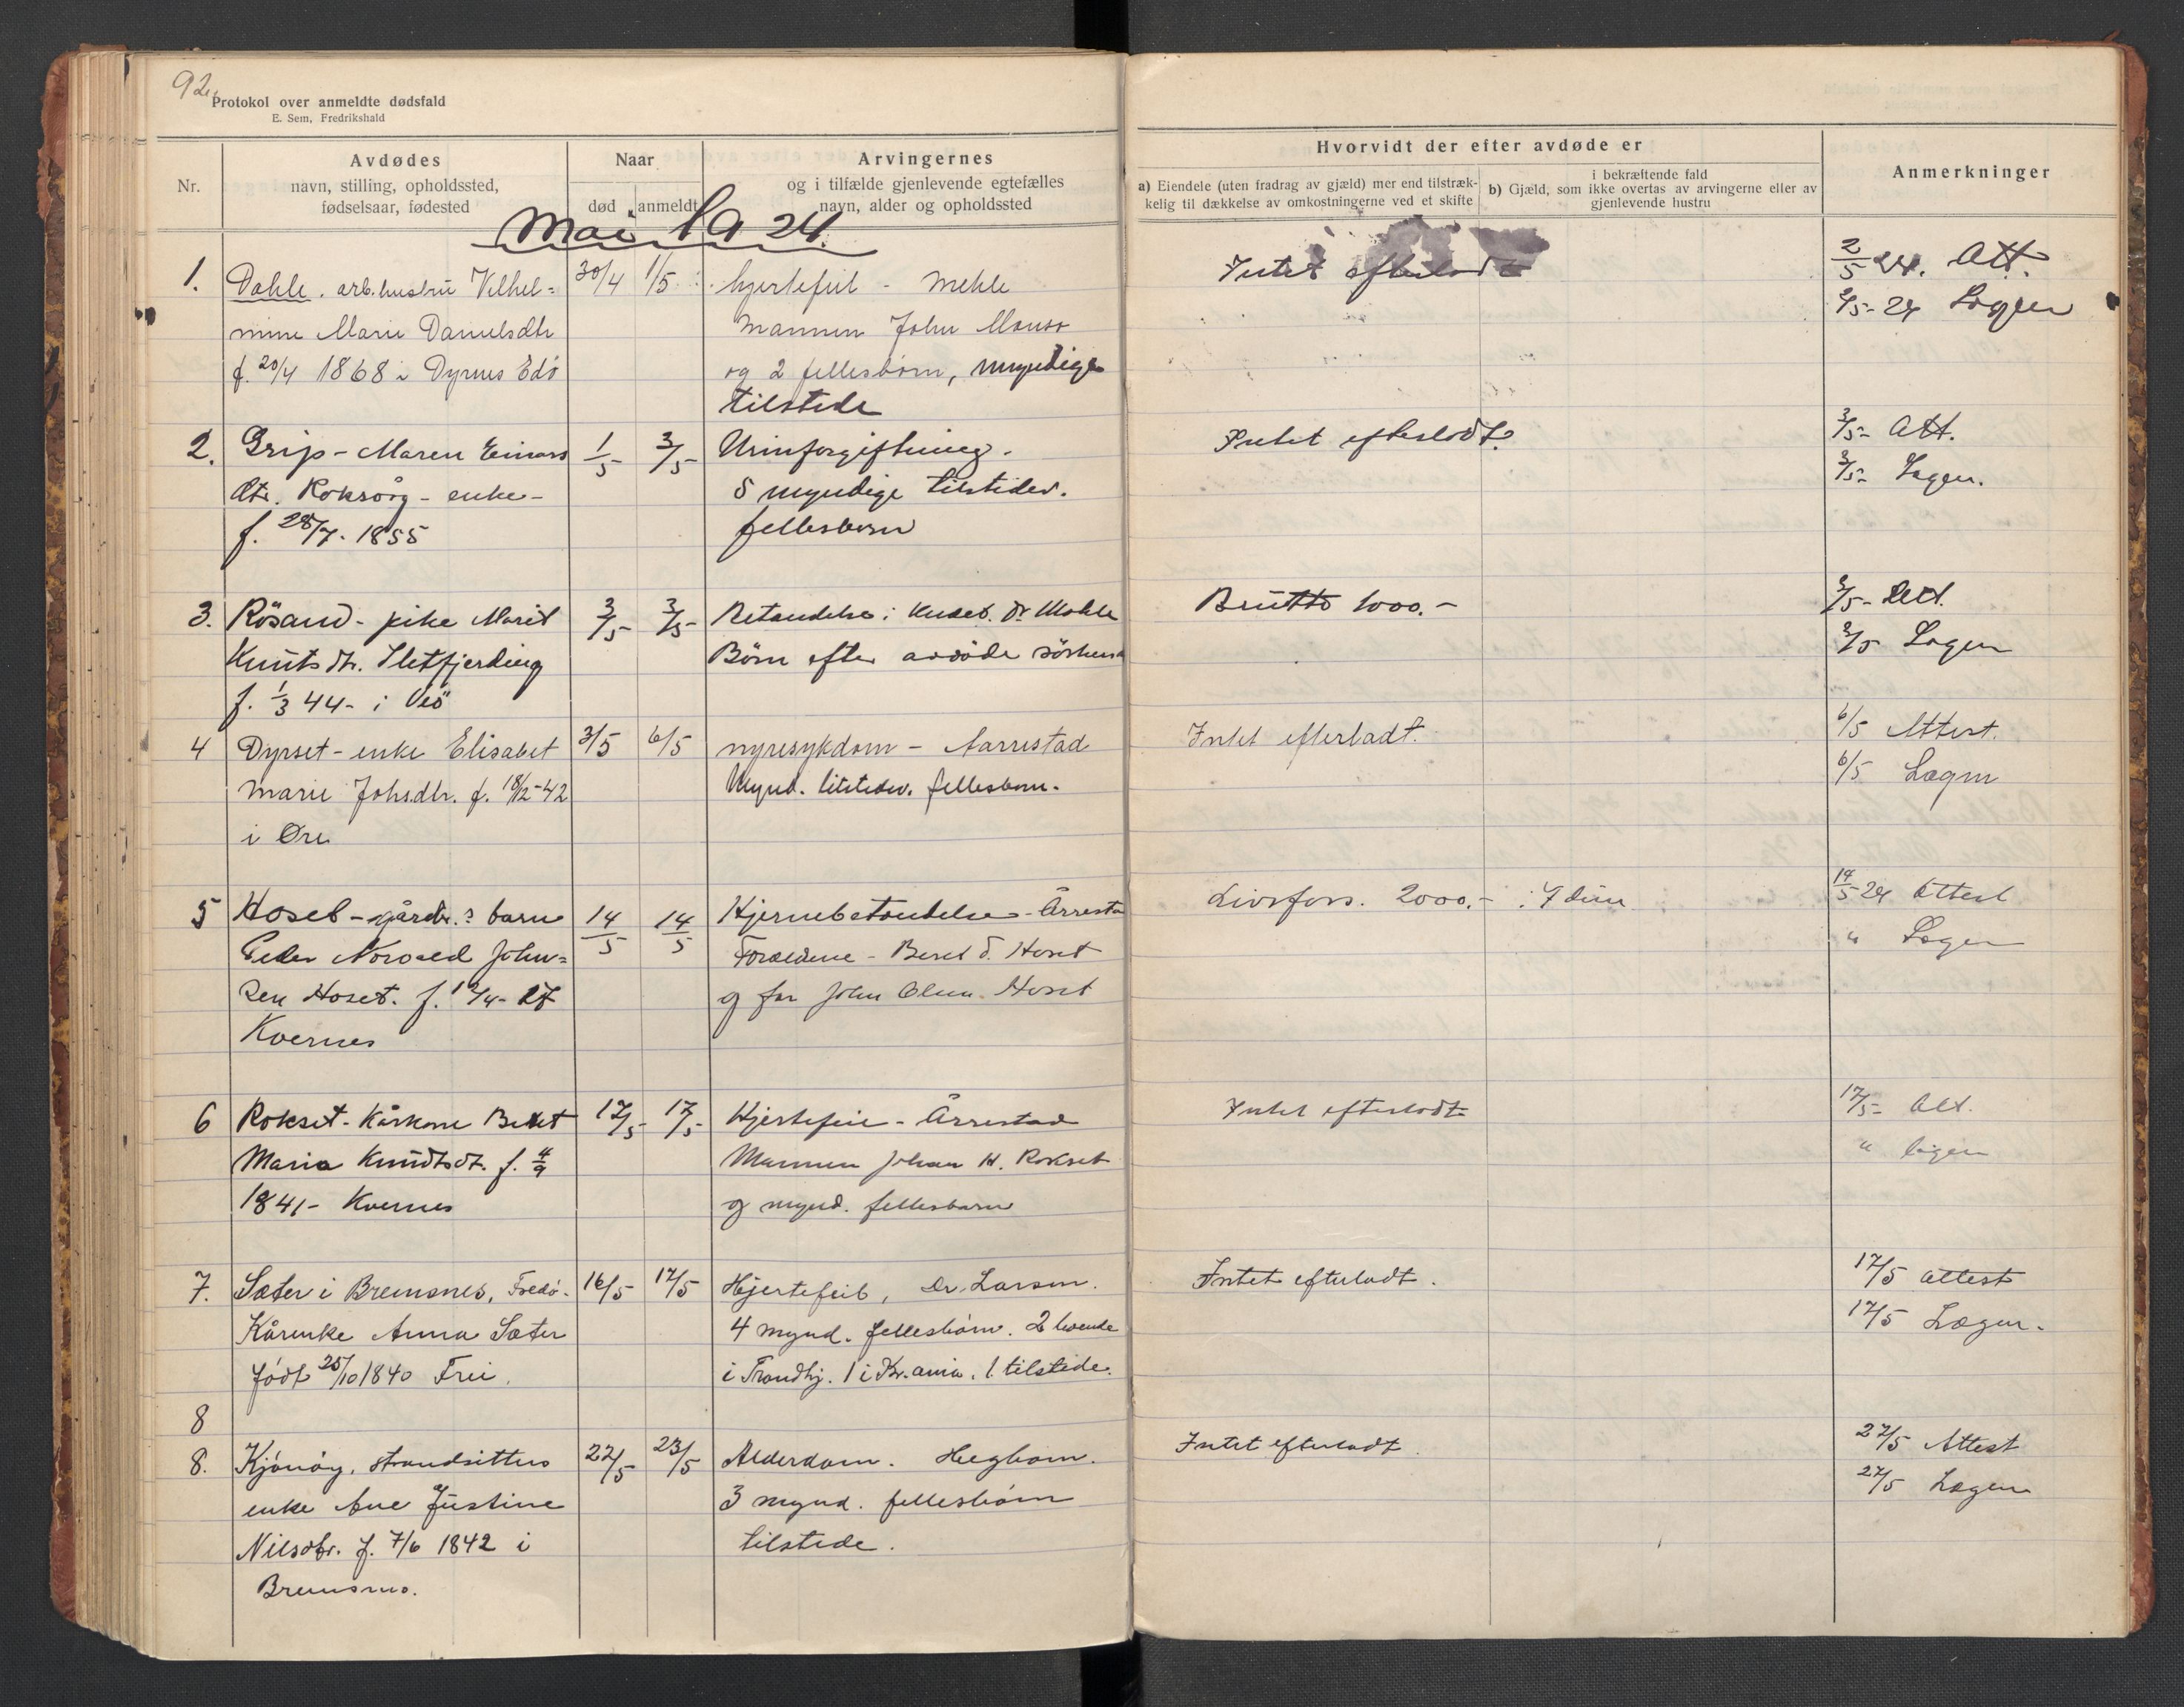 92.
Protokol over anmeldte dødsfald
E. Sem, Fredrikshald
Nr.
Avdødes
navn, stilling, opholdssted,
fødselsaar, fødested
Naar
død
anmeldt
Arvingernes
og i tilfælde gjenlevende egtefælles
navn, alder og opholdssted
Hvorvidt der efter avdøde er
a) Eiendele (uten fradrag av gjæld) mer end tilstræk-
kelig til dækkelse av omkostningerne ved et skifte
i bekræftende fald
b) Gjæld, som ikke overtas av arvingerne eller av
gjenlevende hustru
Anmerkninger
Mai 1924.
1. Dahle. arb.hustru Vilhel= 30/4 1/5 hjertefeil - Mehle Intet efterladt 2/5 24. Att.
mine Marie Danielsdtr mannen John Monsø 2/5-24 Lagen
f. 20/4 1868 i Dyrnes Edö og 2 fellesbörn, myndige
tilstede
2. Grip - Maren Einars 1/5 3/5 Urinforgiftning. Intet efterladt. 3/5- Att.
dtr. Roksvåg - enke- 5 myndige tilstedev. 3/5- Lagen.
f. 28/7. 1855 fellesbørn
3. Rösand - pike Marit 3/5- 3/5- Betændelse i Dr. Mohle Brutto 1000.- 3/5- Att.
Knuts dtr. f. 1/3 44- i Veö Börn efter avdöde 3/5 Lagen
4 Dyrset - enke Elisabet 3/5 6/5 nyresykdom - Aarrestad Intet efterladt. 6/5 Attest.
Marie Johsdtr. f. 18/12-42 Mynd. tilstedev. fellesbørn. 6/5 Lagen
i Øre
5 Hoset - gårdbr.s barn 14/5 14/5 Hjernebetændelse - Årresta Livsfors. 2000.- 14/5 24 Attest
Peder Norvald John= Forældrene - Beret O. Hoset " Lagen
sen Hoset. f. og far John Olsen Hoset
Kvernes
6 Rokset - Kårkone Beret 17/5- 17/5- Hjertefeil - Årrestad Intet efterladt 17/5- Att.
Maria Knudtsdt. f. 4/9 Mannen Johan H. Rokset " lagen
1841 - Kvernes og mynd. fellesbarn
7. Sæter i Bremsnes, Fredö- 16/5 17/5 Hjertefeil, Dr. Larsen. Intet efterladt. 17/5 Attest
Kårenke Anna Sæter 4 mynd. fellesbörn. 2 boende 17/5 Lagen.
födt 25/10 1840 Frei. i Trondhj. 1 i Kr.ania. 1 tilstede.
8
8. Kjönöy, strandsitters 22/5 23/5 Alderdom. Intet efterladt. 27/5 Attest
enke Ane Justine 3 mynd. fellesbörn 27/5 Lagen
Nilsdtr. f. 7/6 1842 i tilstede.
Bremsnes.